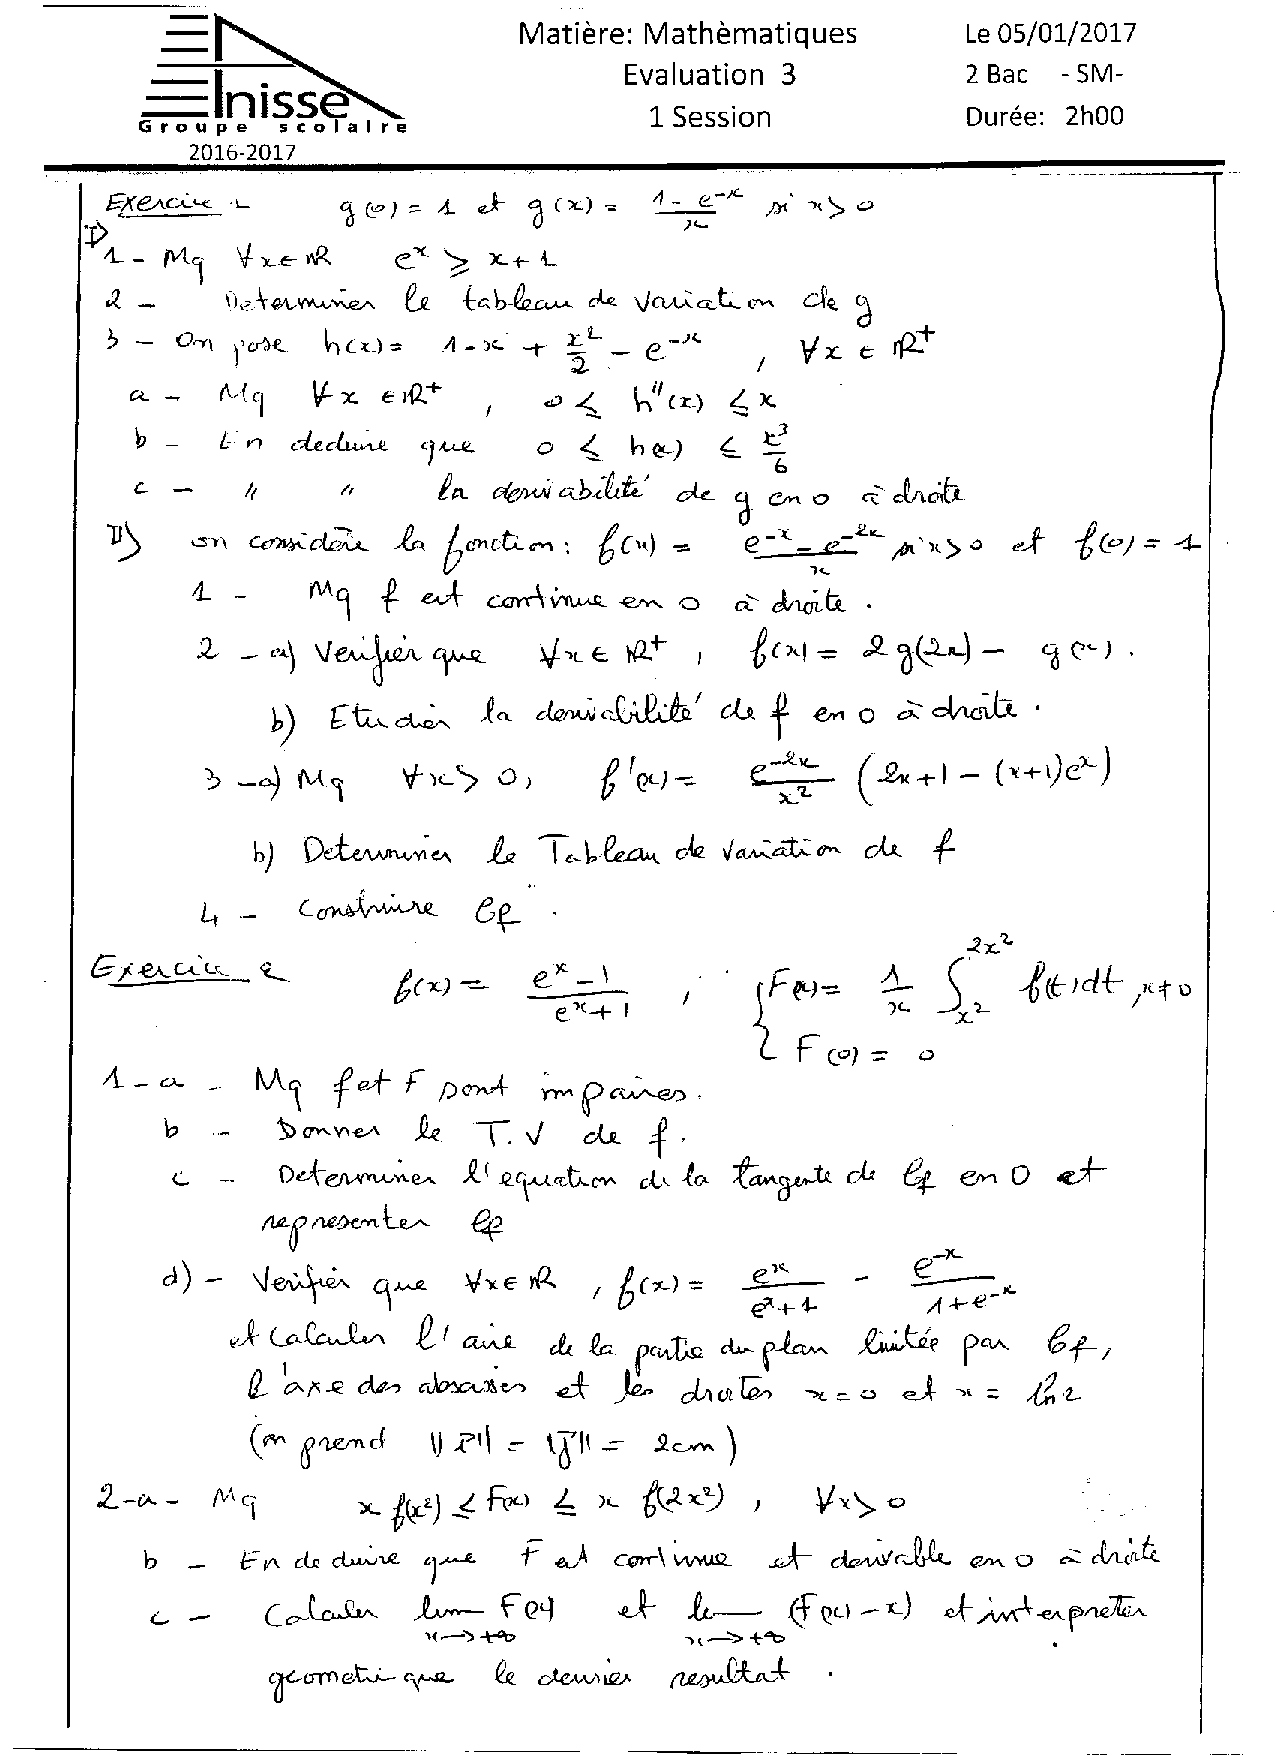 Matière: Mathèmatiques
Le 05/01/2017
Evaluation 3
2 Bac - SM-
1 Session
Durée: 2h00
Enisse
Groupe scolaire
2016-2017
Exercice 1 g(0) = 1 et g(x) = (1 - e^-x)/x si x > 0
I)
1 - Mq ∀x ∈ ℝ e^x ≥ x + 1
2 - Determiner le tableau de variation de g
3 - On pose h(x) = 1 - x + x²/2 - e^-x , ∀x ∈ ℝ+
a - Mq ∀x ∈ ℝ+ , 0 ≤ h''(x) ≤ x
b - En deduire que 0 ≤ h(x) ≤ x³/6
c - " " la derivabilité de g en 0 à droite
II) on considère la fonction : f(x) = (e^-x - e^-2x)/x si x > 0 et f(0) = 1
1 - Mq f est continue en 0 à droite .
2 - a) Verifier que ∀x ∈ ℝ+ , f(x) = 2g(2x) - g(x) .
b) Etudier la derivabilité de f en 0 à droite .
3 - a) Mq ∀x > 0 , f'(x) = e^-2x/x² (2x + 1 - (x+1)e^x)
b) Determiner le Tableau de variation de f
4 - Construire Cf .
Exercice 2 f(x) = (e^x - 1)/(e^x + 1) , { F(x) = 1/x ∫_{x²}^{2x²} f(t)dt , x ≠ 0
F(0) = 0
1 - a - Mq f et F sont impaires .
b - Donner le T.V de f .
c - Determiner l'equation de la tangente de Cf en 0 et
representer Cf
d) - Verifier que ∀x ∈ ℝ , f(x) = e^x/(e^x + 1) - e^-x/(1 + e^-x)
et Calculer l'aire de la partie du plan limitée par Cf ,
l'axe des abscisses et les droites x = 0 et x = ln 2
(on prend ||i⃗|| = ||j⃗|| = 2cm)
2 - a - Mq x f(x²) ≤ F(x) ≤ x f(2x²) , ∀x > 0
b - En deduire que F est continue et derivable en 0 à droite
c - Calculer lim x→+∞ F(x) et lim x→+∞ (F(x) - x) et interpreter
geometrique le dernier resultat .